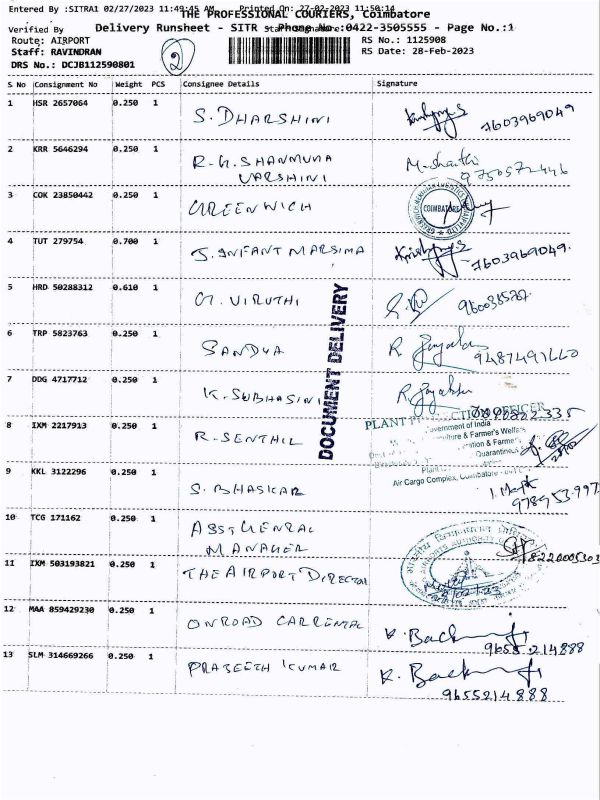 Entered By :SITRA1 02/27/2023 11:49:45 AM Printed On: 27-02-2023 11:50:14
THE PROFESSIONAL COURIERS, Coimbatore
Verified By Delivery Runsheet - SITR - Phone No :0422-3505555 - Page No.:1
Route: AIRPORT RS No.: 1125908
Staff: RAVINDRAN RS Date: 28-Feb-2023
DRS No.: DCJB112590801
2
S No Consignment No Weight PCS Consignee Details Signature
1 HSR 2657064 0.250 1 S. DHARSHINI 7603969049
2 KRR 5646294 0.250 1 R.G. SHANMUNA
VARSHINI 9750572446
3 COK 23850442 0.250 1 GREENWICH
COIMBATORE
4 TUT 279754 0.700 1 J. INFANT MARSIMA 7603969049.
5 HRD 50288312 0.610 1 G. VIRUTHI
DOCUMENT DELIVERY
6 TRP 5823763 0.250 1 SANDYA
7 DDG 4717712 0.250 1 K. SUBHASINI
8 IXM 2217913 0.250 1 R. SENTHIL
Government of India
Air Cargo Complex, Coimbatore
9 KKL 3122296 0.250 1 S. BHASKAR
10 TCG 171162 0.250 1 ASST GENRAL
MANAGER 8220005303
11 IXM 503193821 0.250 1 THE AIRPORT DIRECTOR
12 MAA 859429230 0.250 1 ONROAD CARRENTAL K. Back
9655214888
13 SLM 314669266 0.250 1 PRAJEETH KUMAR K. Back
9655214888